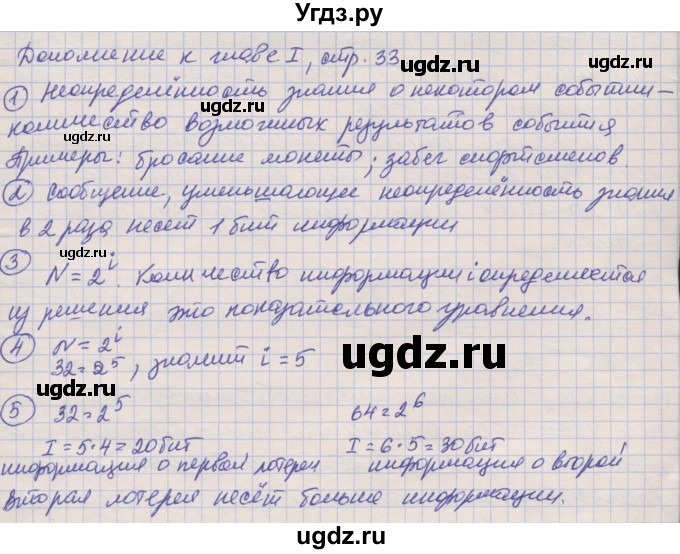 Угдз.ру
Дополнение к главе I, стр. 33
ugdz.ru
① Неопределённость знания о некотором событии –
ugdz.ru
количество возможных результатов события
Примеры: бросание монеты; забег спортсменов.
② Сообщение, уменьшающее неопределённость знания
в 2 раза несет 1 бит информации
ugdz.ru
③ N = 2^i. Количество информации i определяется
из решения это показательного уравнения.
④ N = 2^i
32 = 2^5, значит i = 5
ugdz.ru
ugdz.ru
⑤ 32 = 2^5 64 = 2^6
I = 5·4 = 20 бит I = 6·5 = 30 бит
информация о первой лотереи информация о второй
ugdz.ru
Вторая лотерея несёт больше информации.
Угдз.ру